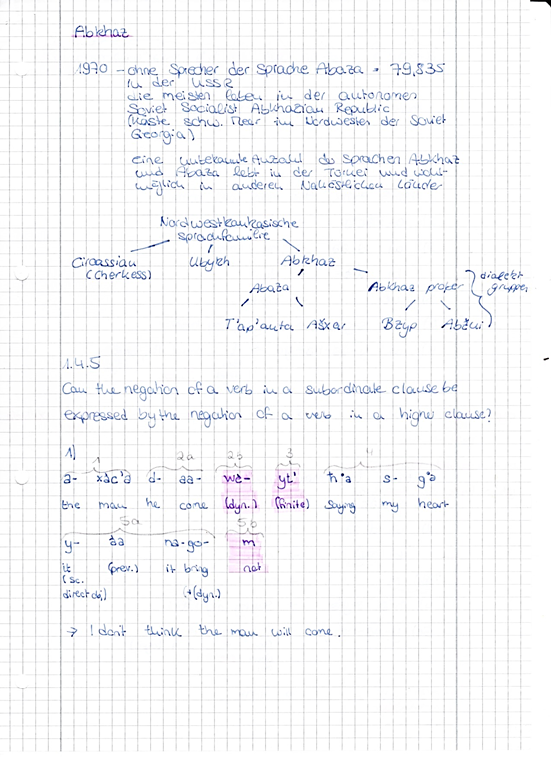 Abkhaz
1970 – ohne Sprecher der Sprache Abaza = 79,835
in der USSR
die meisten leben in der autonomen
Soviet Socialist Abkhazian Republic
(Küste schw. Meer im Nordwesten der Soviet
Georgia)
eine unbekannte Anzahl der Sprachen Abkhaz
und Abaza lebt in der Türkei und wohl-
möglich in anderen Nahöstlichen Länder
Nordwestkaukasische
Sprachfamilie
Circassian Ubykh Abkhaz
(Cherkess)
Abaza Abkhaz proper dialekt
gruppen
T'ap'anta Ašxar Bzyp Abžui
1.4.5
Can the negation of a verb in a subordinate clause be
expressed by the negation of a verb in a higher clause?
1)
1 2a 2b 3 4
a- xàc'a d- aa- wa- yt' h°a s- g°ə
the man he come (dyn.) (finite) saying my heart
5a 5b
y- aa na-go- m
it (prev.) it bring not
(sc.
direct obj) (+(dyn.)
→ I don't think the man will come.